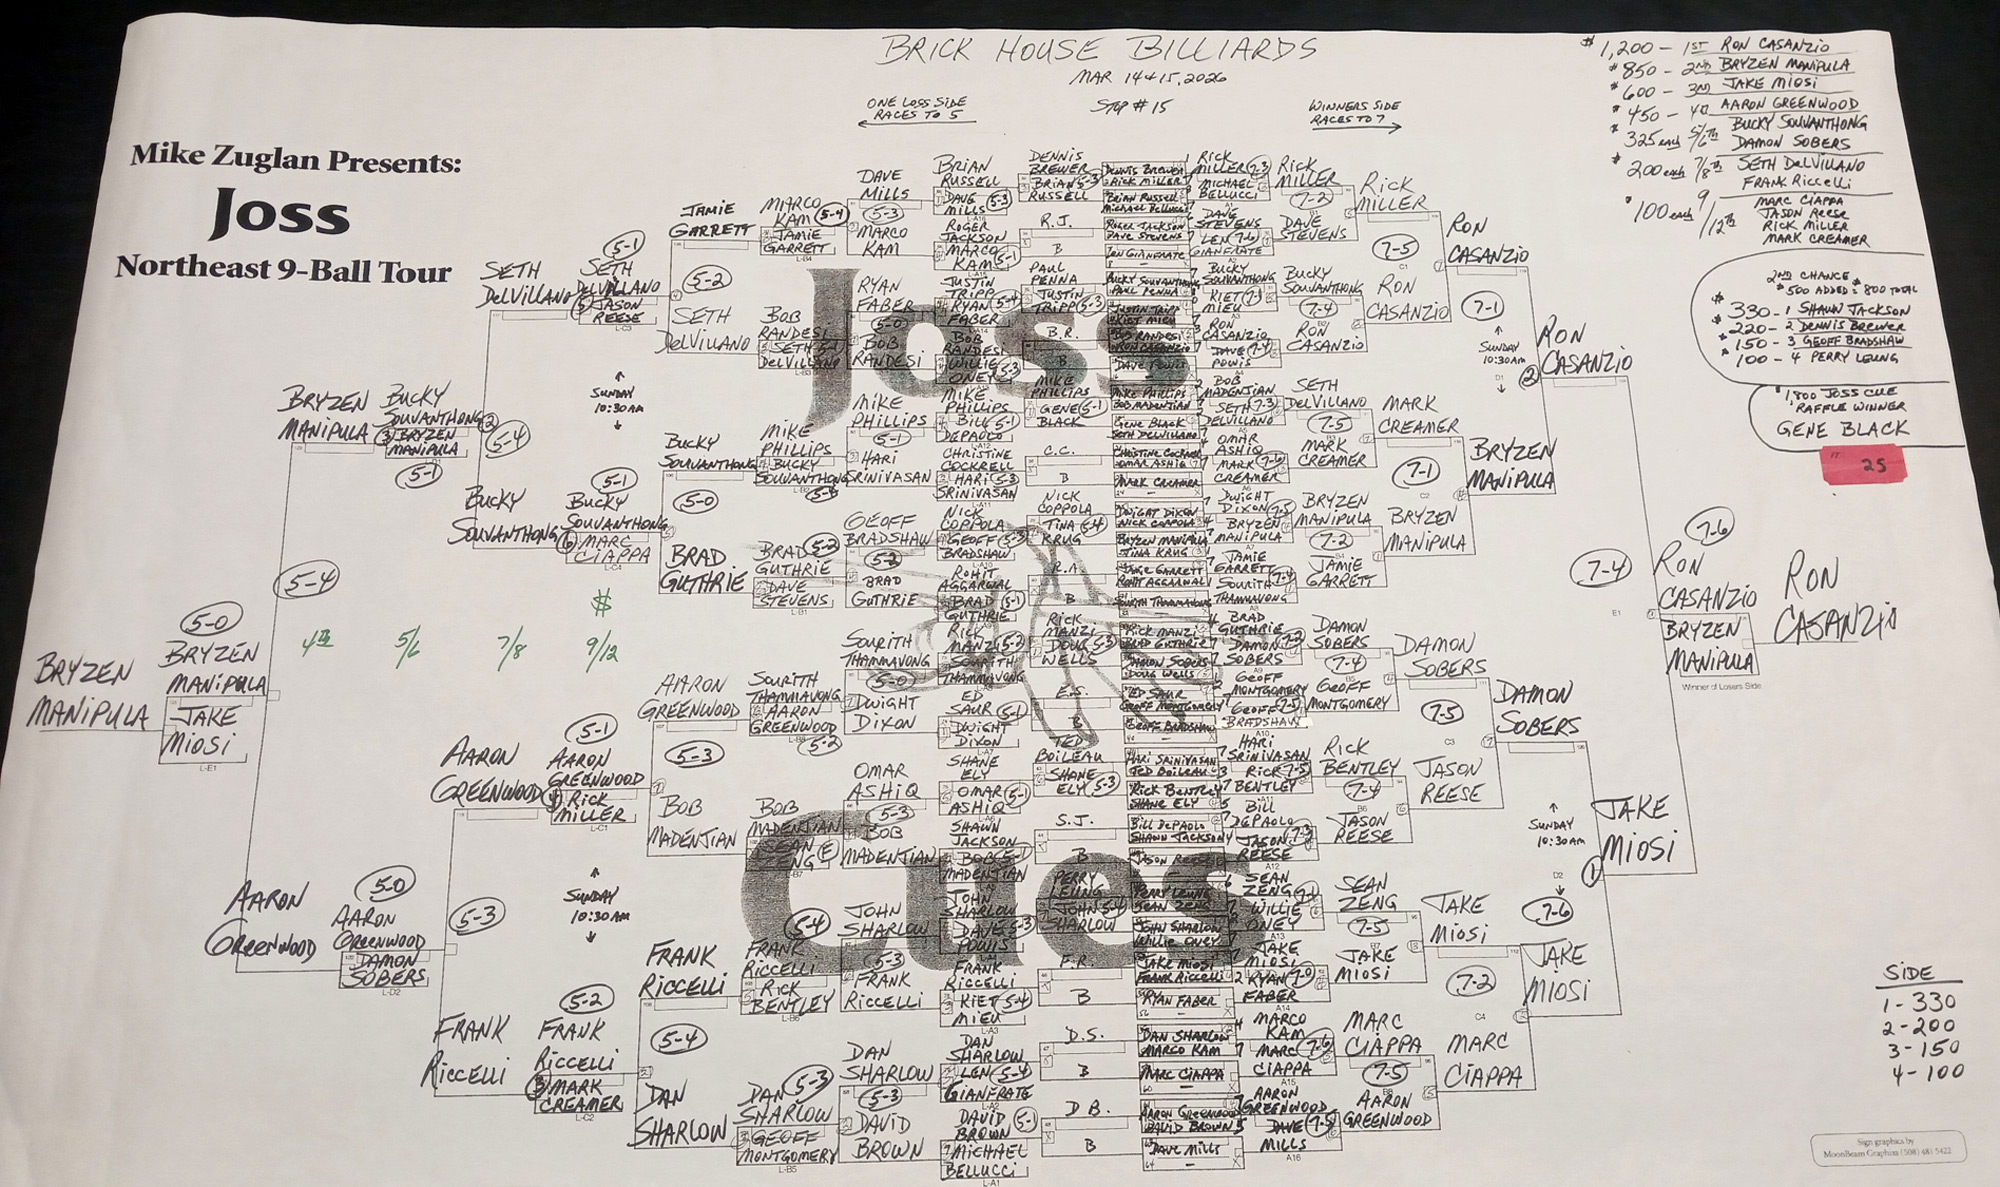 BRICK HOUSE BILLIARDS
MAR 14+15, 2026
STOP # 15
ONE LOSS SIDE
RACES TO 5
WINNERS SIDE
RACES TO 7
Mike Zuglan Presents:
Joss
Northeast 9-Ball Tour
$1,200 - 1ST RON CASANZIO
$850 - 2ND BRYZEN MANIPULA
$600 - 3RD JAKE MIOSI
$450 - 4th AARON GREENWOOD
325 each 5/6th BUCKY SOUVANTHONG
DAMON SOBERS
$200 each 7/8th SETH DELVILLANO
FRANK RICCELLI
$100 each 9/12th MARC CIAPPA
JASON REESE
RICK MILLER
MARK CREAMER
2ND CHANCE
$500 ADDED = $800 TOTAL
$330 - 1 SHAWN JACKSON
$220 - 2 DENNIS BREWER
$150 - 3 GEOFF BRADSHAW
$100 - 4 PERRY LEUNG
$1,800 JOSS CUE
RAFFLE WINNER
GENE BLACK
25
SIDE
1 - 330
2 - 200
3 - 150
4 - 100
Sign graphics by
MoonBeam Graphixs (508) 481 5422
Joss
Cues
BRYZEN
MANIPULA
5-0
BRYZEN
MANIPULA
JAKE
MIOSI
L-E1
5-4
4th
5/6
7/8
9/12
$
BRYZEN
MANIPULA
AARON
GREENWOOD
BUCKY
SOUVANTHONG
BRYZEN
MANIPULA
5-1
5-0
AARON
GREENWOOD
DAMON
SOBERS
L-D2
SETH
DELVILLANO
5-4
BUCKY
SOUVANTHONG
AARON
GREENWOOD
5-3
FRANK
RICCELLI
5-1
SETH
DELVILLANO
JASON
REESE
L-C3
SUNDAY
10:30 AM
5-1
BUCKY
SOUVANTHONG
MARC
CIAPPA
L-C4
5-1
AARON
GREENWOOD
RICK
MILLER
L-C1
SUNDAY
10:30 AM
5-2
FRANK
RICCELLI
MARK
CREAMER
L-C2
JAMIE
GARRETT
5-2
SETH
DELVILLANO
BUCKY
SOUVANTHONG
5-0
BRAD
GUTHRIE
AARON
GREENWOOD
5-3
BOB
MADENTJIAN
FRANK
RICCELLI
5-4
DAN
SHARLOW
MARCO
KAM
5-4
JAMIE
GARRETT
L-B4
BOB
RANDESI
SETH
DELVILLANO
L-B3
MIKE
PHILLIPS
BUCKY
SOUVANTHONG
L-B2
5-4
BRAD
GUTHRIE
5-2
DAVE
STEVENS
L-B1
SOURITH
THAMMAVONG
AARON
GREENWOOD
L-B8
5-2
BOB
MADENTJIAN
SEAN
ZENG
L-B7
5-4
FRANK
RICCELLI
RICK
BENTLEY
L-B6
DAN
SHARLOW
5-3
GEOFF
MONTGOMERY
L-B5
DAVE
MILLS
5-3
MARCO
KAM
RYAN
FABER
5-0
BOB
RANDESI
MIKE
PHILLIPS
5-1
HARI
SRINIVASAN
GEOFF
BRADSHAW
5-2
BRAD
GUTHRIE
SOURITH
THAMMAVONG
5-0
DWIGHT
DIXON
OMAR
ASHIQ
5-3
BOB
MADENTJIAN
JOHN
SHARLOW
5-3
FRANK
RICCELLI
DAN
SHARLOW
5-3
DAVID
BROWN
BRIAN
RUSSELL
DAVE 5-3
MILLS
ROGER
JACKSON
MARCO
KAM 5-1
JUSTIN
TRIPP
RYAN 5-4
FABER
BOB
RANDESI
WILLIE
ONEY 5-3
MIKE
PHILLIPS
BILL 5-1
DEPAOLO
CHRISTINE
COCKRELL
HARI 5-3
SRINIVASAN
NICK
COPPOLA
GEOFF 5-3
BRADSHAW
ROHIT
AGGARWAL
BRAD 5-1
GUTHRIE
RICK
MANZI 5-2
SOURITH
THAMMAVONG
ED
SAUR
5-1
DWIGHT
DIXON
L-A7
SHANE
ELY
OMAR
ASHIQ 5-1
SHAWN
JACKSON
BOB 5-1
MADENTJIAN
JOHN
SHARLOW
DAVE 5-3
POWIS
FRANK
RICCELLI
KIET 5-4
MIEU
L-A3
DAN
SHARLOW
LEN 5-4
GIANFRATE
L-A2
DAVID
BROWN 5-1
MICHAEL
BELLUCCI
L-A1
DENNIS
BREWER
BRIAN 5-3
RUSSELL
R.J.
B
PAUL
PENNA
JUSTIN
TRIPP 5-3
B.R.
B
MIKE
PHILLIPS
GENE 5-1
BLACK
C.C.
B
NICK
COPPOLA
TINA 5-4
KRUG
R.A.
B
RICK
MANZI
DOUG 5-3
WELLS
E.S.
B
TED
BOILEAU
SHANE
ELY 5-3
S.J.
B
PERRY
LEUNG
JOHN 5-4
SHARLOW
F.R.
B
D.S.
B
D B.
B
DENNIS BREWER
RICK MILLER
BRIAN RUSSELL
MICHAEL BELLUCCI
ROGER JACKSON
DAVE STEVENS
LEN GIANFRATE
-
BUCKY SOUVANTHONG
PAUL PENNA
JUSTIN TRIPP
KIET MIEU
BOB RANDESI
RON CASANZIO
DAVE POWIS
-
MIKE PHILLIPS
BOB MADENTJIAN
GENE BLACK
SETH DELVILLANO
CHRISTINE COCKRELL
OMAR ASHIQ
MARK CREAMER
-
DWIGHT DIXON
NICK COPPOLA
BRYZEN MANIPULA
TINA KRUG
JAMIE GARRETT
ROHIT AGGARWAL
SOURITH THAMMAVONG
-
RICK MANZI
BRAD GUTHRIE
DAMON SOBERS
DOUG WELLS
ED SAUR
GEOFF MONTGOMERY
GEOFF BRADSHAW
-
HARI SRINIVASAN
TED BOILEAU
RICK BENTLEY
SHANE ELY
BILL DEPAOLO
SHAWN JACKSON
JASON REESE
-
PERRY LEUNG
SEAN ZENG
JOHN SHARLOW
WILLIE ONEY
JAKE MIOSI
FRANK RICCELLI
RYAN FABER
-
DAN SHARLOW
MARCO KAM
MARC CIAPPA
-
AARON GREENWOOD
DAVID BROWN
DAVE MILLS
-
RICK
MILLER 7-3
MICHAEL
BELLUCCI
DAVE
STEVENS
LEN 7-6
GIANFRATE
BUCKY
SOUVANTHONG
KIET 7-1
MIEU
RON
CASANZIO
DAVE 7-4
POWIS
BOB
MADENTJIAN
SETH 7-3
DELVILLANO
OMAR
ASHIQ
MARK 7-6
CREAMER
DWIGHT
DIXON 7-5
BRYZEN
MANIPULA
JAMIE
GARRETT
SOURITH 7-4
THAMMAVONG
BRAD
GUTHRIE
DAMON 7-2
SOBERS
GEOFF
MONTGOMERY
GEOFF 7-5
BRADSHAW
A10
HARI
SRINIVASAN
RICK 7-5
BENTLEY
BILL
DEPAOLO
JASON 7-3
REESE
A12
SEAN
ZENG 7-1
WILLIE
ONEY
A13
JAKE
MIOSI
RYAN 7-0
FABER
A14
MARCO
KAM
MARC 7-6
CIAPPA
A15
AARON
GREENWOOD
DAVE 7-5
MILLS
A16
RICK
MILLER
7-2
DAVE
STEVENS
BUCKY
SOUVANTHONG
7-4
RON
CASANZIO
SETH
DELVILLANO
7-5
MARK
CREAMER
BRYZEN
MANIPULA
7-2
JAMIE
GARRETT
DAMON
SOBERS
7-4
GEOFF
MONTGOMERY
RICK
BENTLEY
7-4
JASON
REESE
SEAN
ZENG
7-5
JAKE
MIOSI
MARC
CIAPPA
7-5
AARON
GREENWOOD
RICK
MILLER
7-5
RON
CASANZIO
MARK
CREAMER
7-1
BRYZEN
MANIPULA
DAMON
SOBERS
7-5
JASON
REESE
JAKE
MIOSI
7-2
MARC
CIAPPA
RON
CASANZIO
7-1
SUNDAY
10:30AM
D1
BRYZEN
MANIPULA
DAMON
SOBERS
SUNDAY
10:30AM
D2
7-6
JAKE
MIOSI
RON
CASANZIO
7-4
E1
JAKE
MIOSI
7-6
RON
CASANZIO
BRYZEN
MANIPULA
Winner of Losers Side
RON
CASANZIO